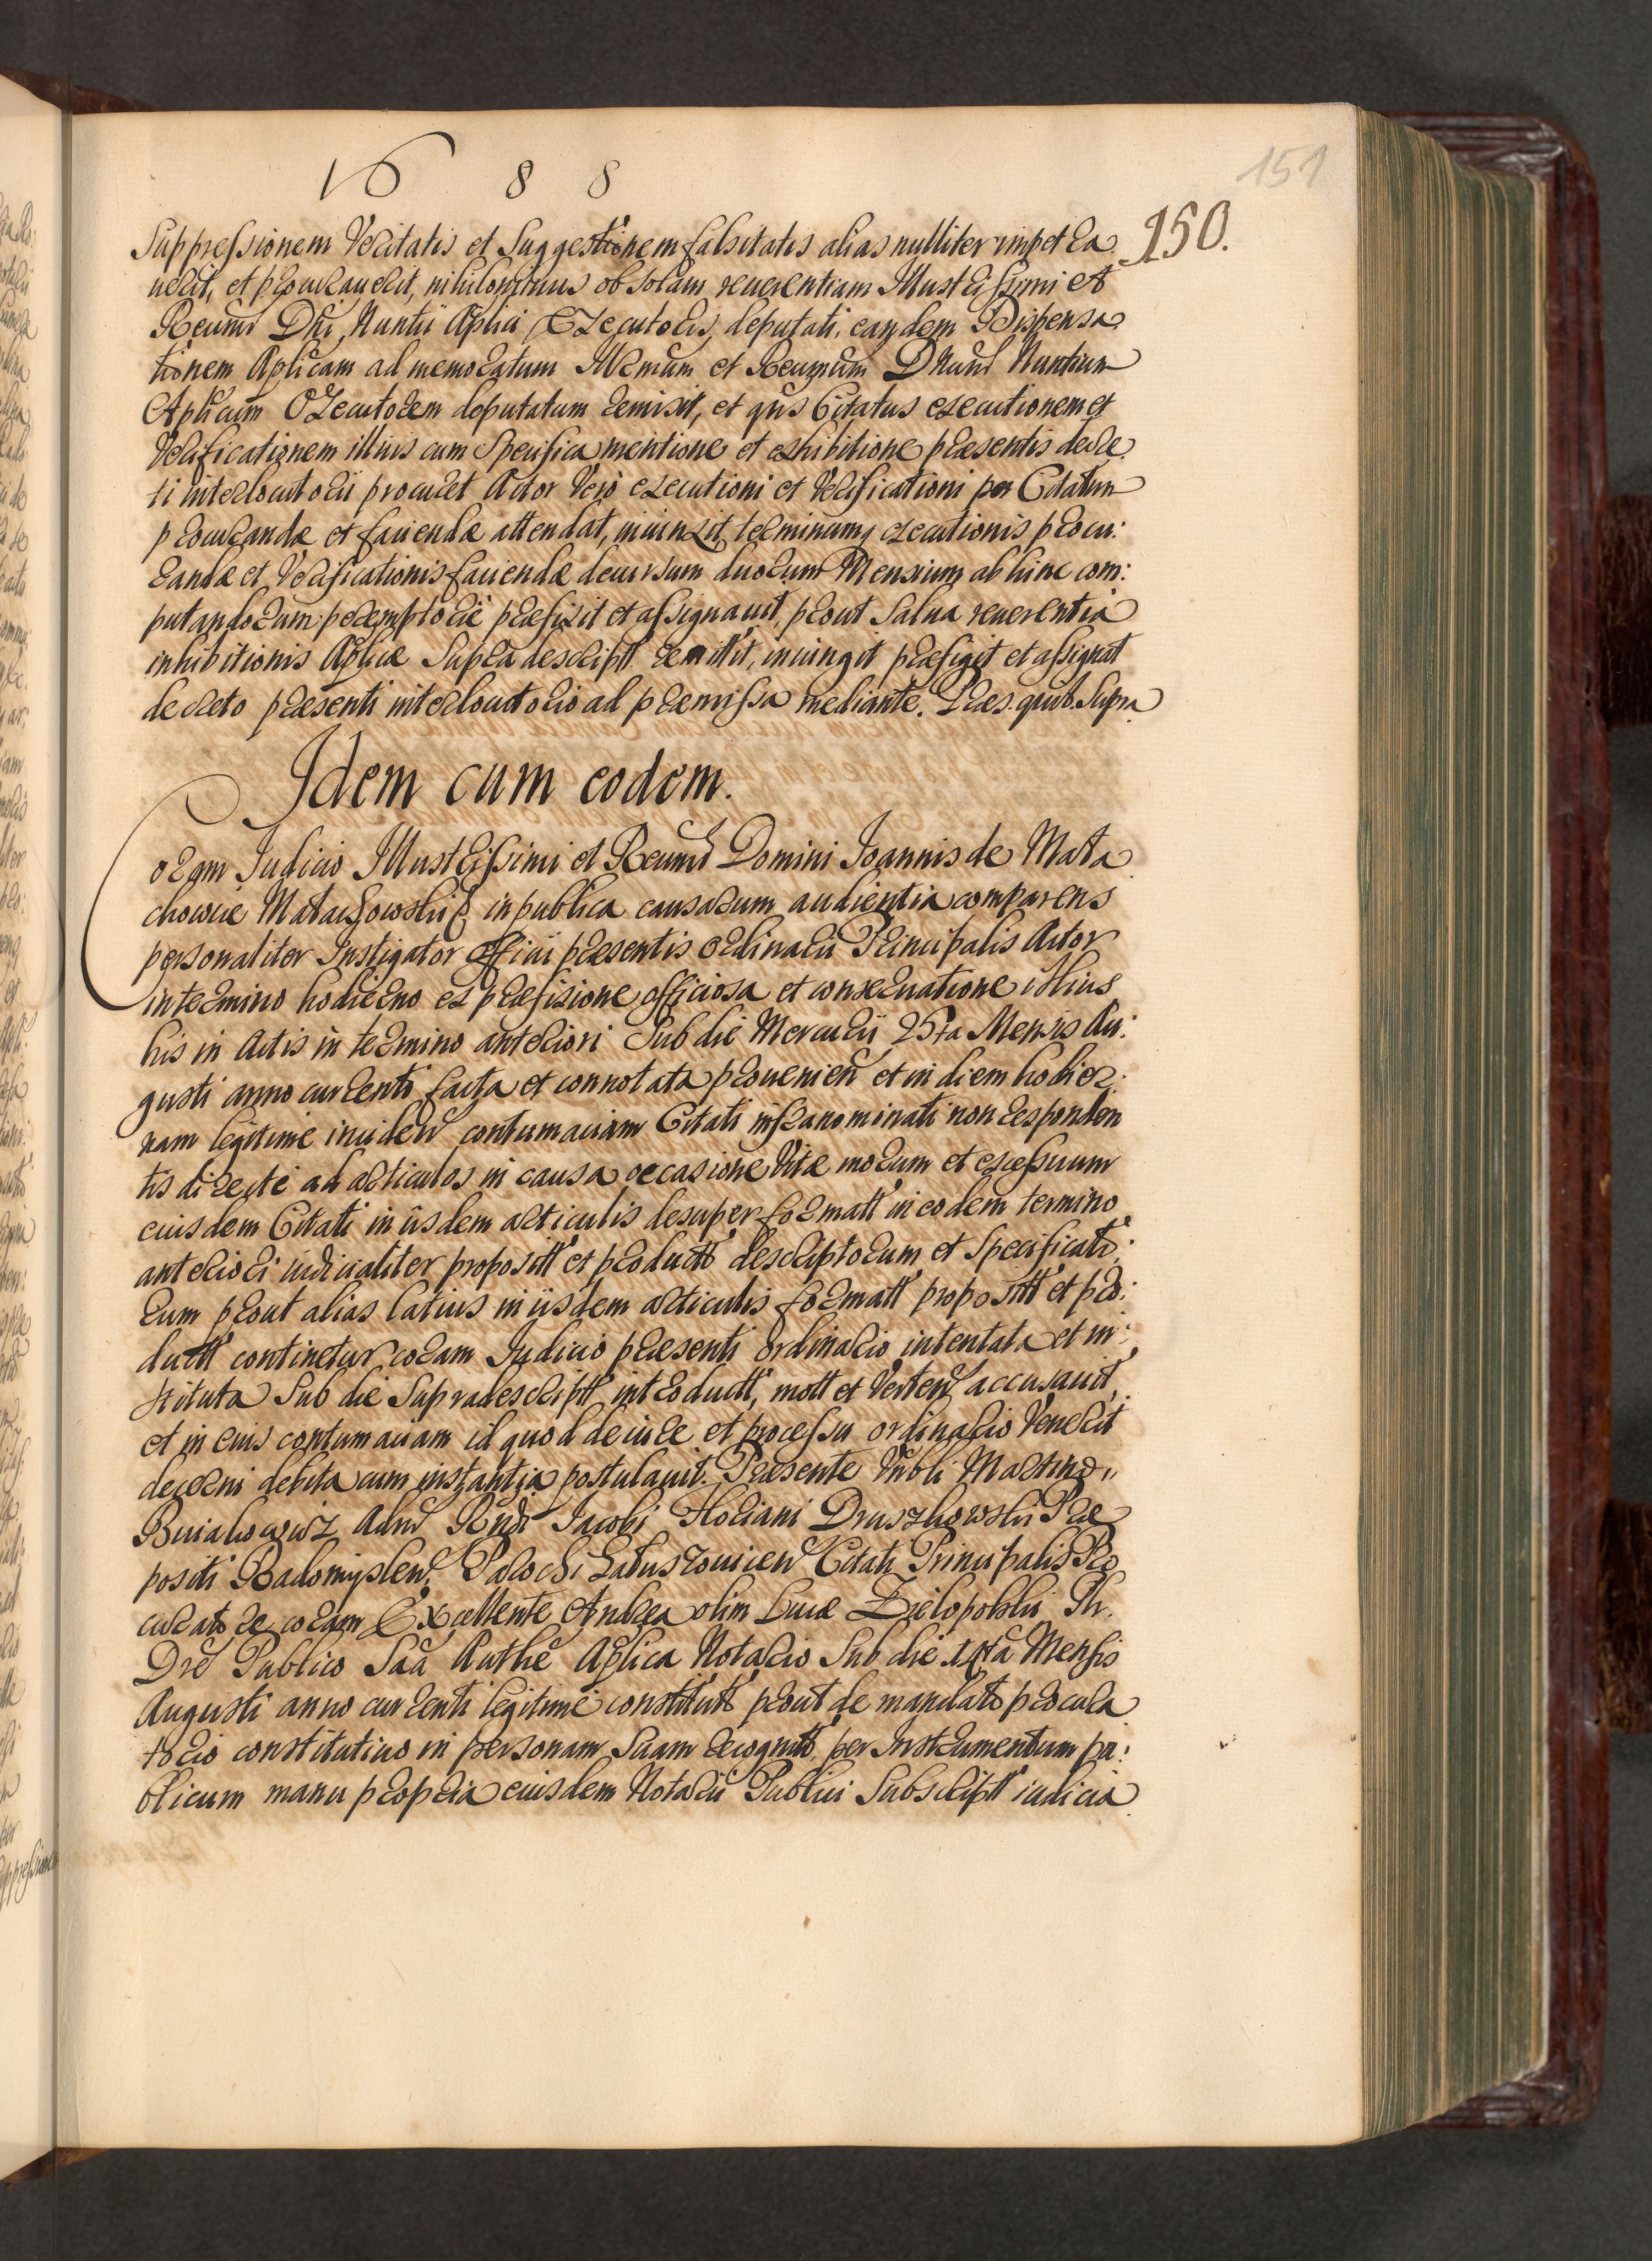 151
1688
150.
Suppressionem Veritatis et Suggestionem falsitatis alias nulliter impetra
uerit, et procurauerit, nihilominus ob solam reuerentiam Illustrissimi et
Reumi Dni Nuntii Aplici Executoris deputati, eandem Dispensa
tionem Aplicam ad memoratum Illmum et Reumum Dnum Nuntium
Aplicum Executorem deputatum remisit, et qus Citatus executionem et
Verificationem illius cum Specifica mentione et exhibitione praesentis decre
ti interlocutorii procuret Actor Vero executioni et Verificationi per Citatum
procurandae et faciendae attendat, iniunxit, terminumq executionis procu:
randae et Verificationis faciendae decursum duorum Mensium ab hinc com:
putandorum peremptorie praefixit et assignauit, prout Salua reuerentia
inhibitionis Aplicae Supra descriptt remittit, iniungit praefigit et assignat
decreto praesenti interlocutorio ad praemissa mediante. Praes. quib. Supra
Idem cum eodem.
Coram Judicio Illustrissimi et Reumi Domini Joannis de Mała
chowice Małachowski E, in publica causarum audientia comparens
personaliter Instigator Officii praesentis ordinarii Principalis Actor
in termino hodierno ex praefixione officiosa et conseruatione illius
his in Actis in termino anteriori Sub die Mercurii 25ta Mensis Au:
gusti anno currenti facta et connotata prouenien et in diem hodier:
nam legitime inciden contumaciam Citati infranominati non responden
tis directe ad articulos in causa occasione Vitae morum et excessuum
eiusdem Citati in iisdem articulis desuper formatt in eodem termino
anteriori iudicialiter propositt et productt descriptorum et Specificato:
rum prout alias latius in iisdem articulis formatt propositt et pro:
ductt continetur coram Judicio praesenti ordinario intentata et in:
stituta Sub die Supradescriptt introductt, mott et Verten accusauit,
et in eius contumaciam id quod de iure et processu ordinario Venerit
decerni debita cum instantia postulauit. Praesente Nobli Martino
Buiakowicz Adm Rndi Jacobi Floriani Druszkowski Prae
positi Radomyslen, Parochi Łatuszouicen Citati Principalis Pro
curatore coram Excellente Andrea olim Lucae Zielopolski Ph.
Dre Publico Saa Authe Aplica Notario Sub die 14ta Mensis
Augusti anno currenti legitime constitutt prout de mandato procura
torio constitutiuo in personam Suam recognito, per Instrumentum pu:
blicum manu propria eiusdem Notarii Publici Subscriptt iudicia